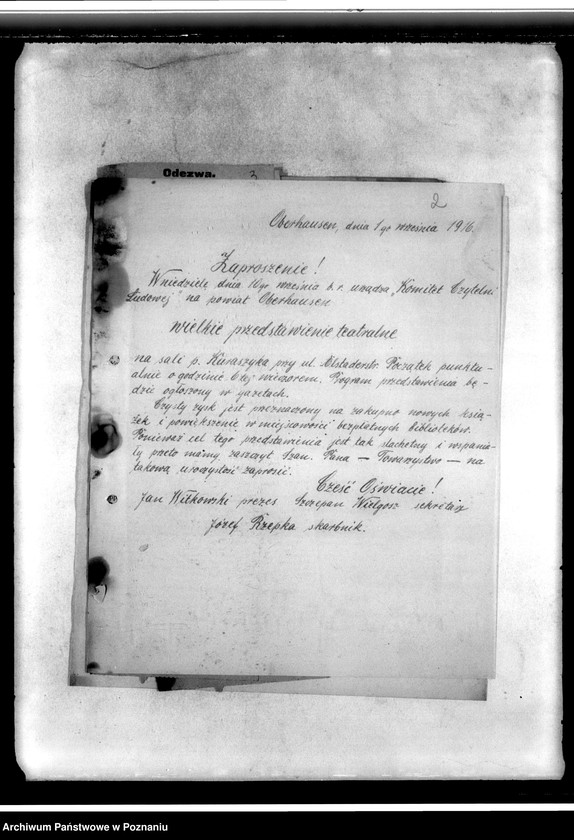 Odezwa.
3
2
Oberhausen, dnia 1go września 1916.
Zaproszenie!
W niedzielę dnia 10go września b. r. urządza "Komitet Czytelni
Ludowej" na powiat Oberhausen
wielkie przedstawienie teatralne
na sali p. Kuraszyka przy ul. Alstaderstr. Początek punktu-
alnie o godzinie 6tej wieczorem. Program przedstawienia bę-
dzie ogłoszony w gazetach.
Czysty zysk jest przeznaczony na zakupno nowych ksią-
żek i powiększenie w miejscowości bezpłatnych bibliotek.
Ponieważ cel tego przedstawienia jest tak szlachetny i wspania-
ły przeto mamy zaszczyt Szan. Pana — Towarzystwo — na
takową uroczystość zaprosić.
Cześć Oświacie!
Jan Witkowski prezes Szczepan Wielgosz sekretarz
Józef Rzepka skarbnik.
Archiwum Państwowe w Poznaniu